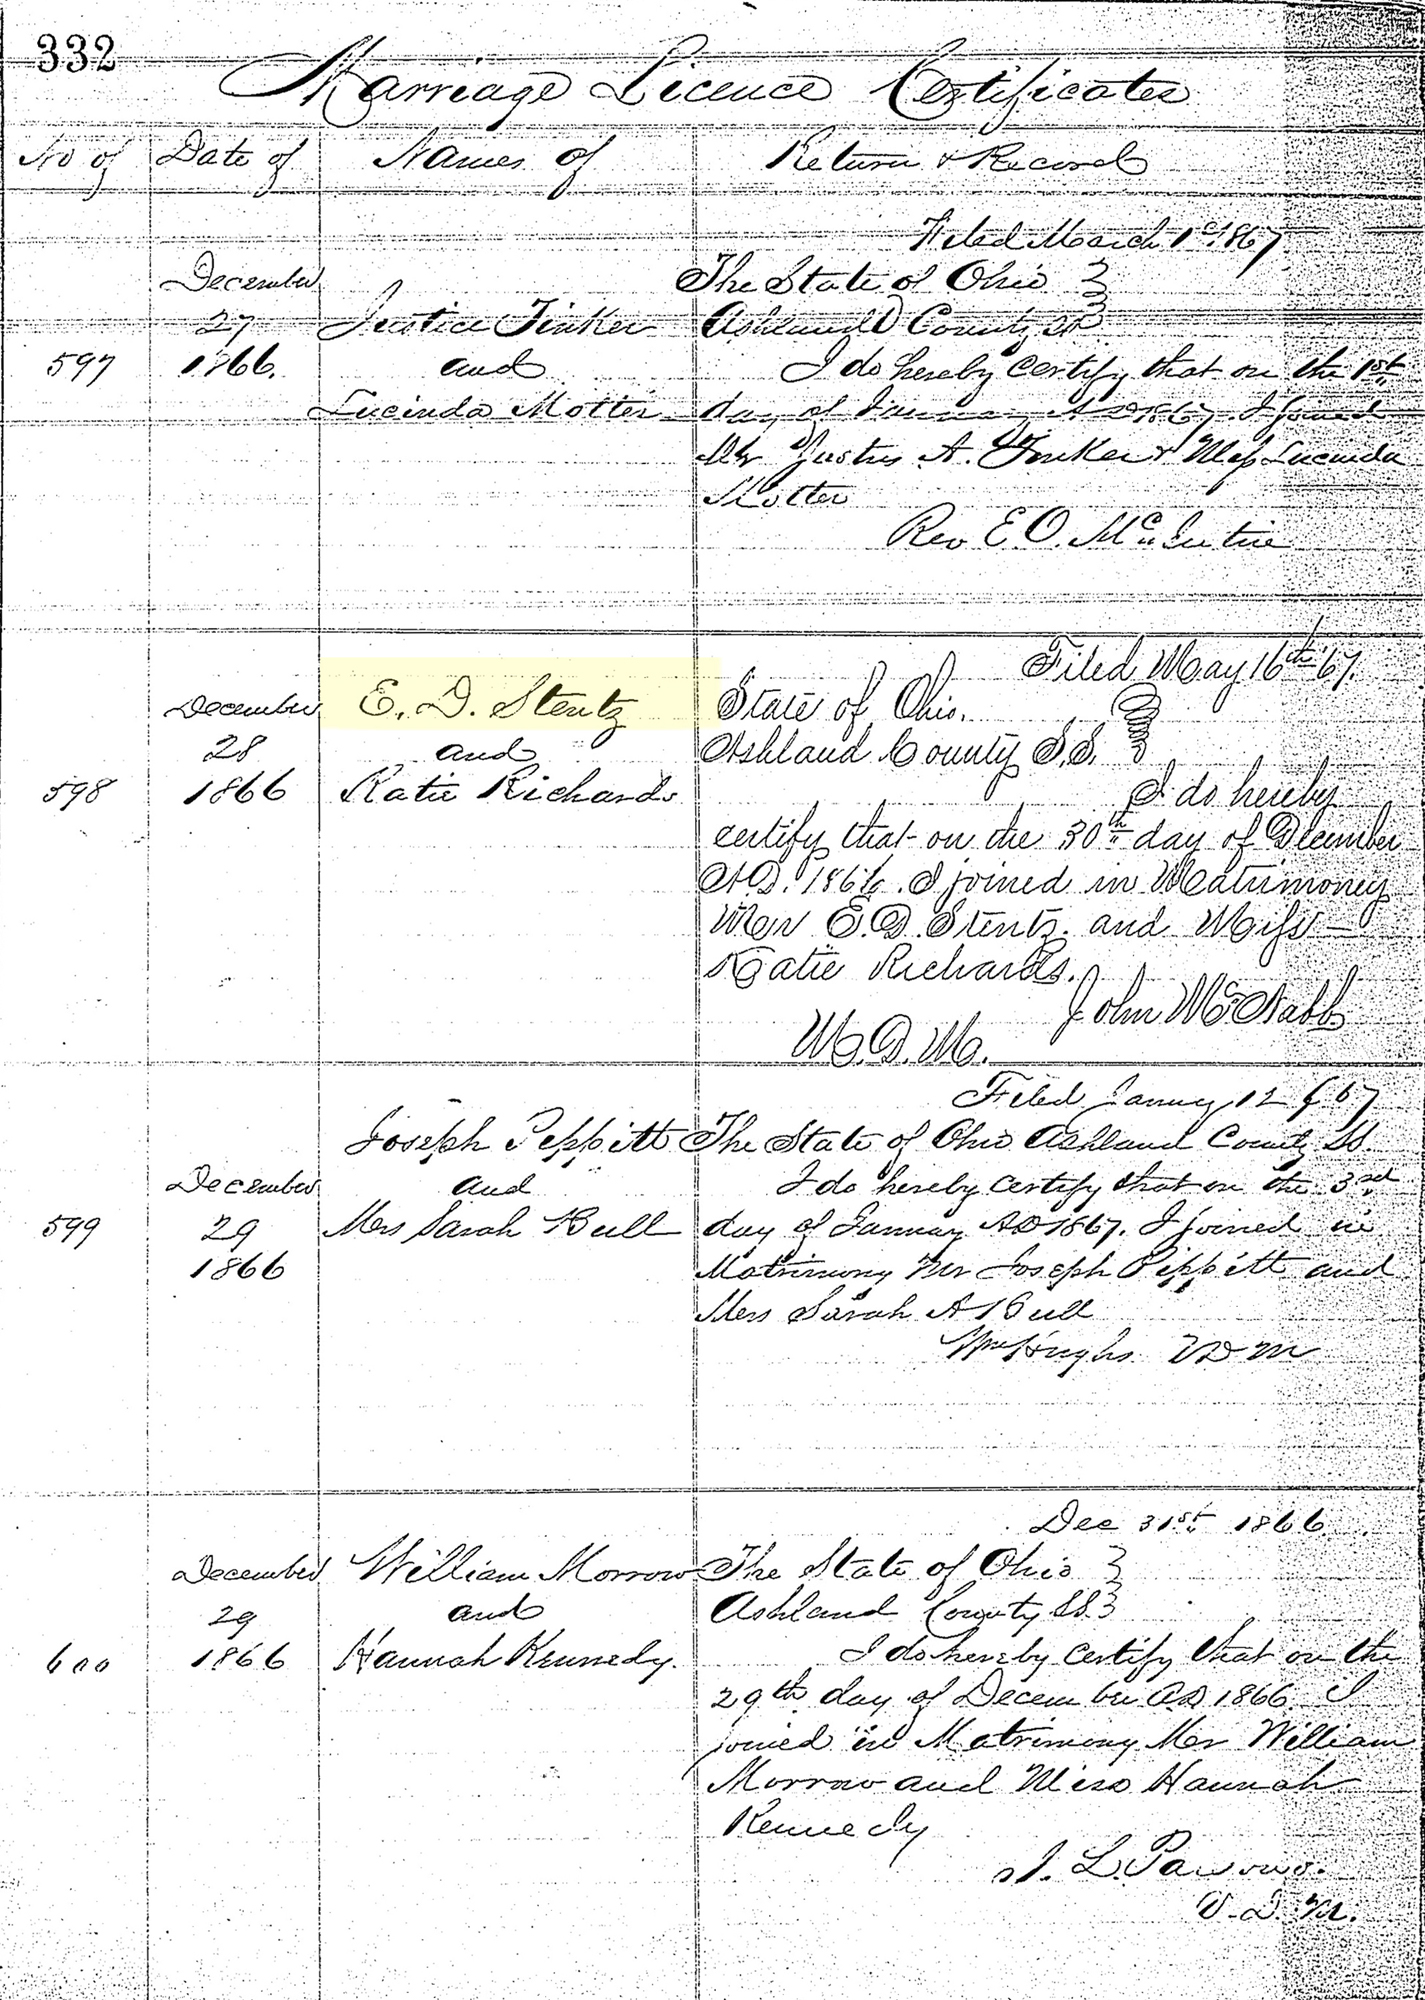 332
Marriage Licence Certificates
No of Date of Names of Return & Record
Filed March 1st 1867
December The State of Ohio
27 Justice Tinker Ashland County SS
597 1866. and I do hereby certify that on the 1st
Lucinda Motter day of January AD 1867. I joined
Mr Justus A. Tinker & Miss Lucinda
Motter
Rev E. O. McIntire
Filed May 16th 67.
December E. D. Stentz State of Ohio.
28 and Ashland County S.S.
598 1866 Katie Richards I do hereby
certify that on the 30th day of December
A.D. 1866. I joined in Matrimoney
Mr E. D. Stentz. and Miss
Katie Richards.
John McNabb
M.D.M.
Filed January 12 / 67
Joseph Peppitt The State of Ohio Ashland County SS.
December and I do hereby certify that on the 3rd
599 29 Mrs Sarah Bull day of January AD 1867. I joined in
1866 Matrimony Mr Joseph Pippitt and
Mrs Sarah A Bull
Wm Hughs VDM
Dec 31st 1866
December William Morrow The State of Ohio
29 and Ashland County SS
600 1866 Hannah Kennedy. I do hereby certify that on the
29th day of December AD 1866 I
joined in Matrimony Mr William
Morrow and Miss Hannah
Kennedy
L.
V. D. M.